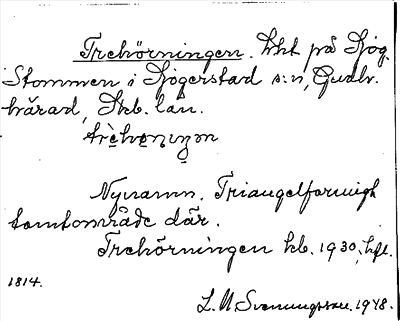 Trehörningen. lht på Sjög.
Stommen i Sjögerstad s:n, Gudh.
härad, Skb. län.
Nynamn. Triangelformigt
tomtområde där.
Trehörningen kb. 1930, hfl.
1814.
L. M. Svenungsson. 1948.